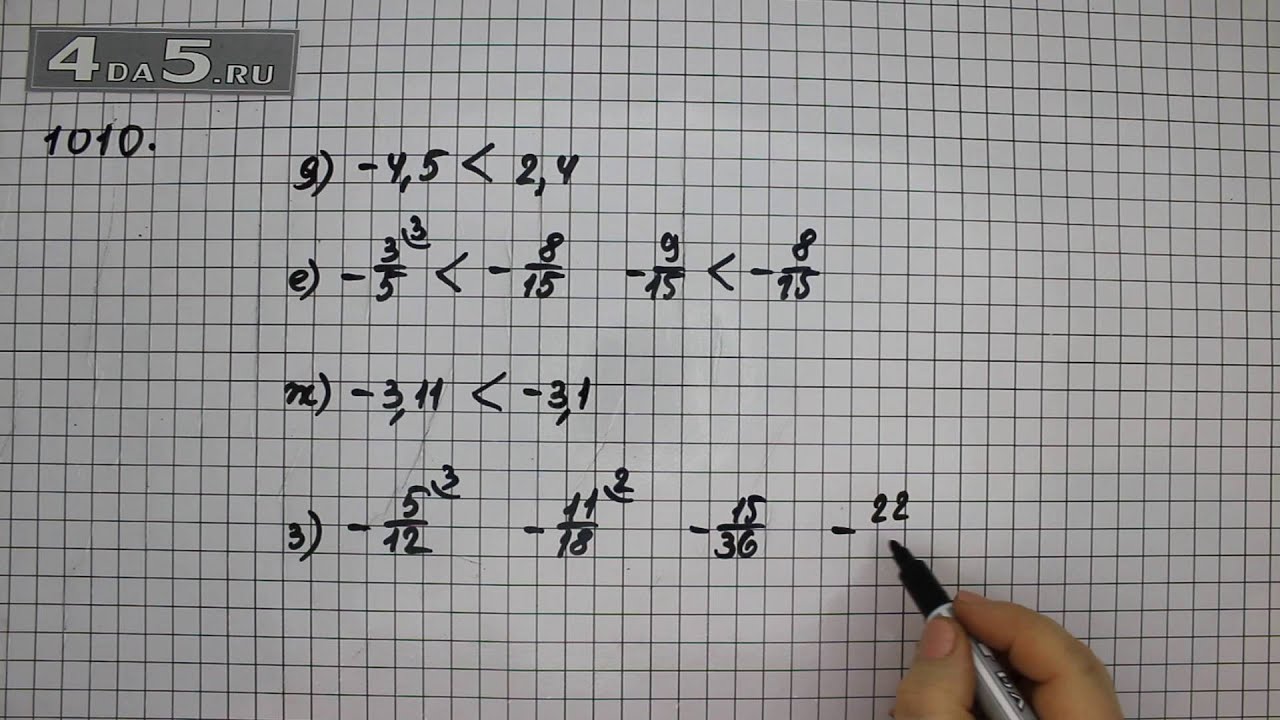 4DA5.RU
1010.
д) -4,5 < 2,4
е) -3/5 ⁽³ < -8/15 -9/15 < -8/15
ж) -3,11 < -3,1
з) -5/12 ⁽³ -11/18 ⁽² -15/36 -22